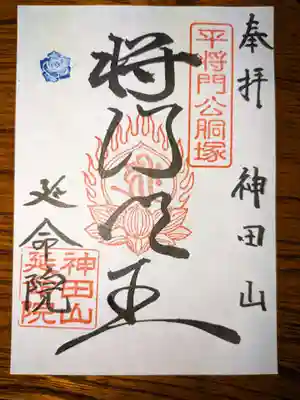 奉拝 神田山
平将門公胴塚
将門明王
延命院
神田山延命院